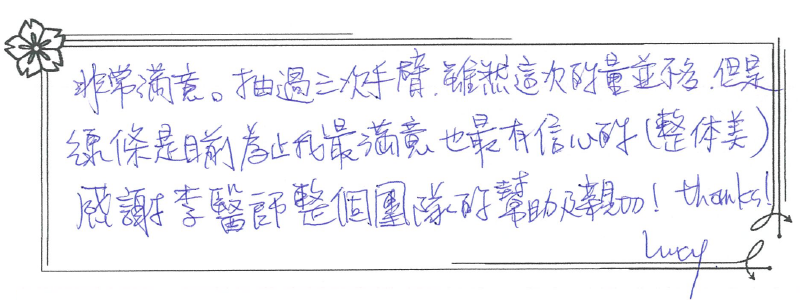 非常滿意。抽過三次手臂,雖然這次的量並不多,但是
線條是目前為止我最滿意也最有信心的(整体美)
感謝李醫師整個團隊的幫助及親切! thanks!
Lucy